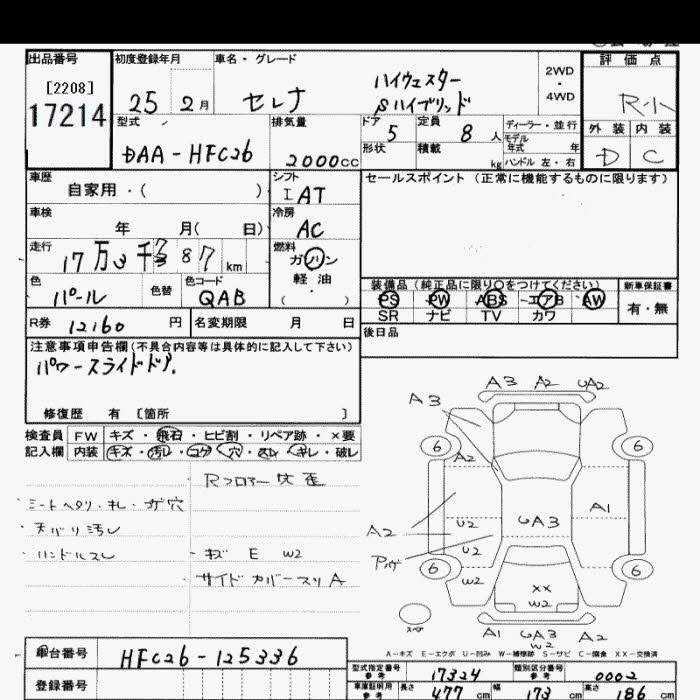 出品番号 初度登録年月 車名・グレード 評価点
[2208]
17214
25 2月 セレナ ハイウェスター
Sハイブリッド
2WD
・
4WD
R-小
型式 排気量 ドア 5 定員 8人 ディーラー・並行
モデル年式 年
外装 内装
DAA-HFC26 2000cc 形状 積載 kg ハンドル 左・右 D C
車歴 シフト セールスポイント (正常に機能するものに限ります)
自家用・( ) IAT
車検 冷房
年 月( 日) AC
走行 燃料
17万 87 km ガソリン
軽油
( )
色 色替 色コード 装備品(純正品に限り○をつけてください) 新車保証書
パール QAB PS PW ABS エアB AW 有・無
SR ナビ TV カワ
R券 12160円 名変期限 月 日 後日品
注意事項申告欄(不具合内容等は具体的に記入して下さい)
パワースライドドア.
修復歴 有 〔箇所 〕
検査員 FW キズ・飛石・ヒビ割・リペア跡・×要
記入欄 内装 キズ・汚レ・コゲ・穴・スレ・キレ・破レ
Rフロアー
天バリ汚レ
ハンドルスレ キズ E W2
サイドカバースリA
A3 A2 UA2
A3
6 6
A2
A1
A2 U2 UA3
U2
6 6
W2 XX
W2
スペア
A1 UA3 A2
W2
A-キズ E-エクボ U-凹み W-補修跡 S-サビ C-腐食 XX-交換済
車台番号 HFC26-125336
型式指定番号 参考 17324 類別区分番号 参考 0002
登録番号 車庫証明用 参考 長さ 477cm 幅 173cm 高さ 186cm